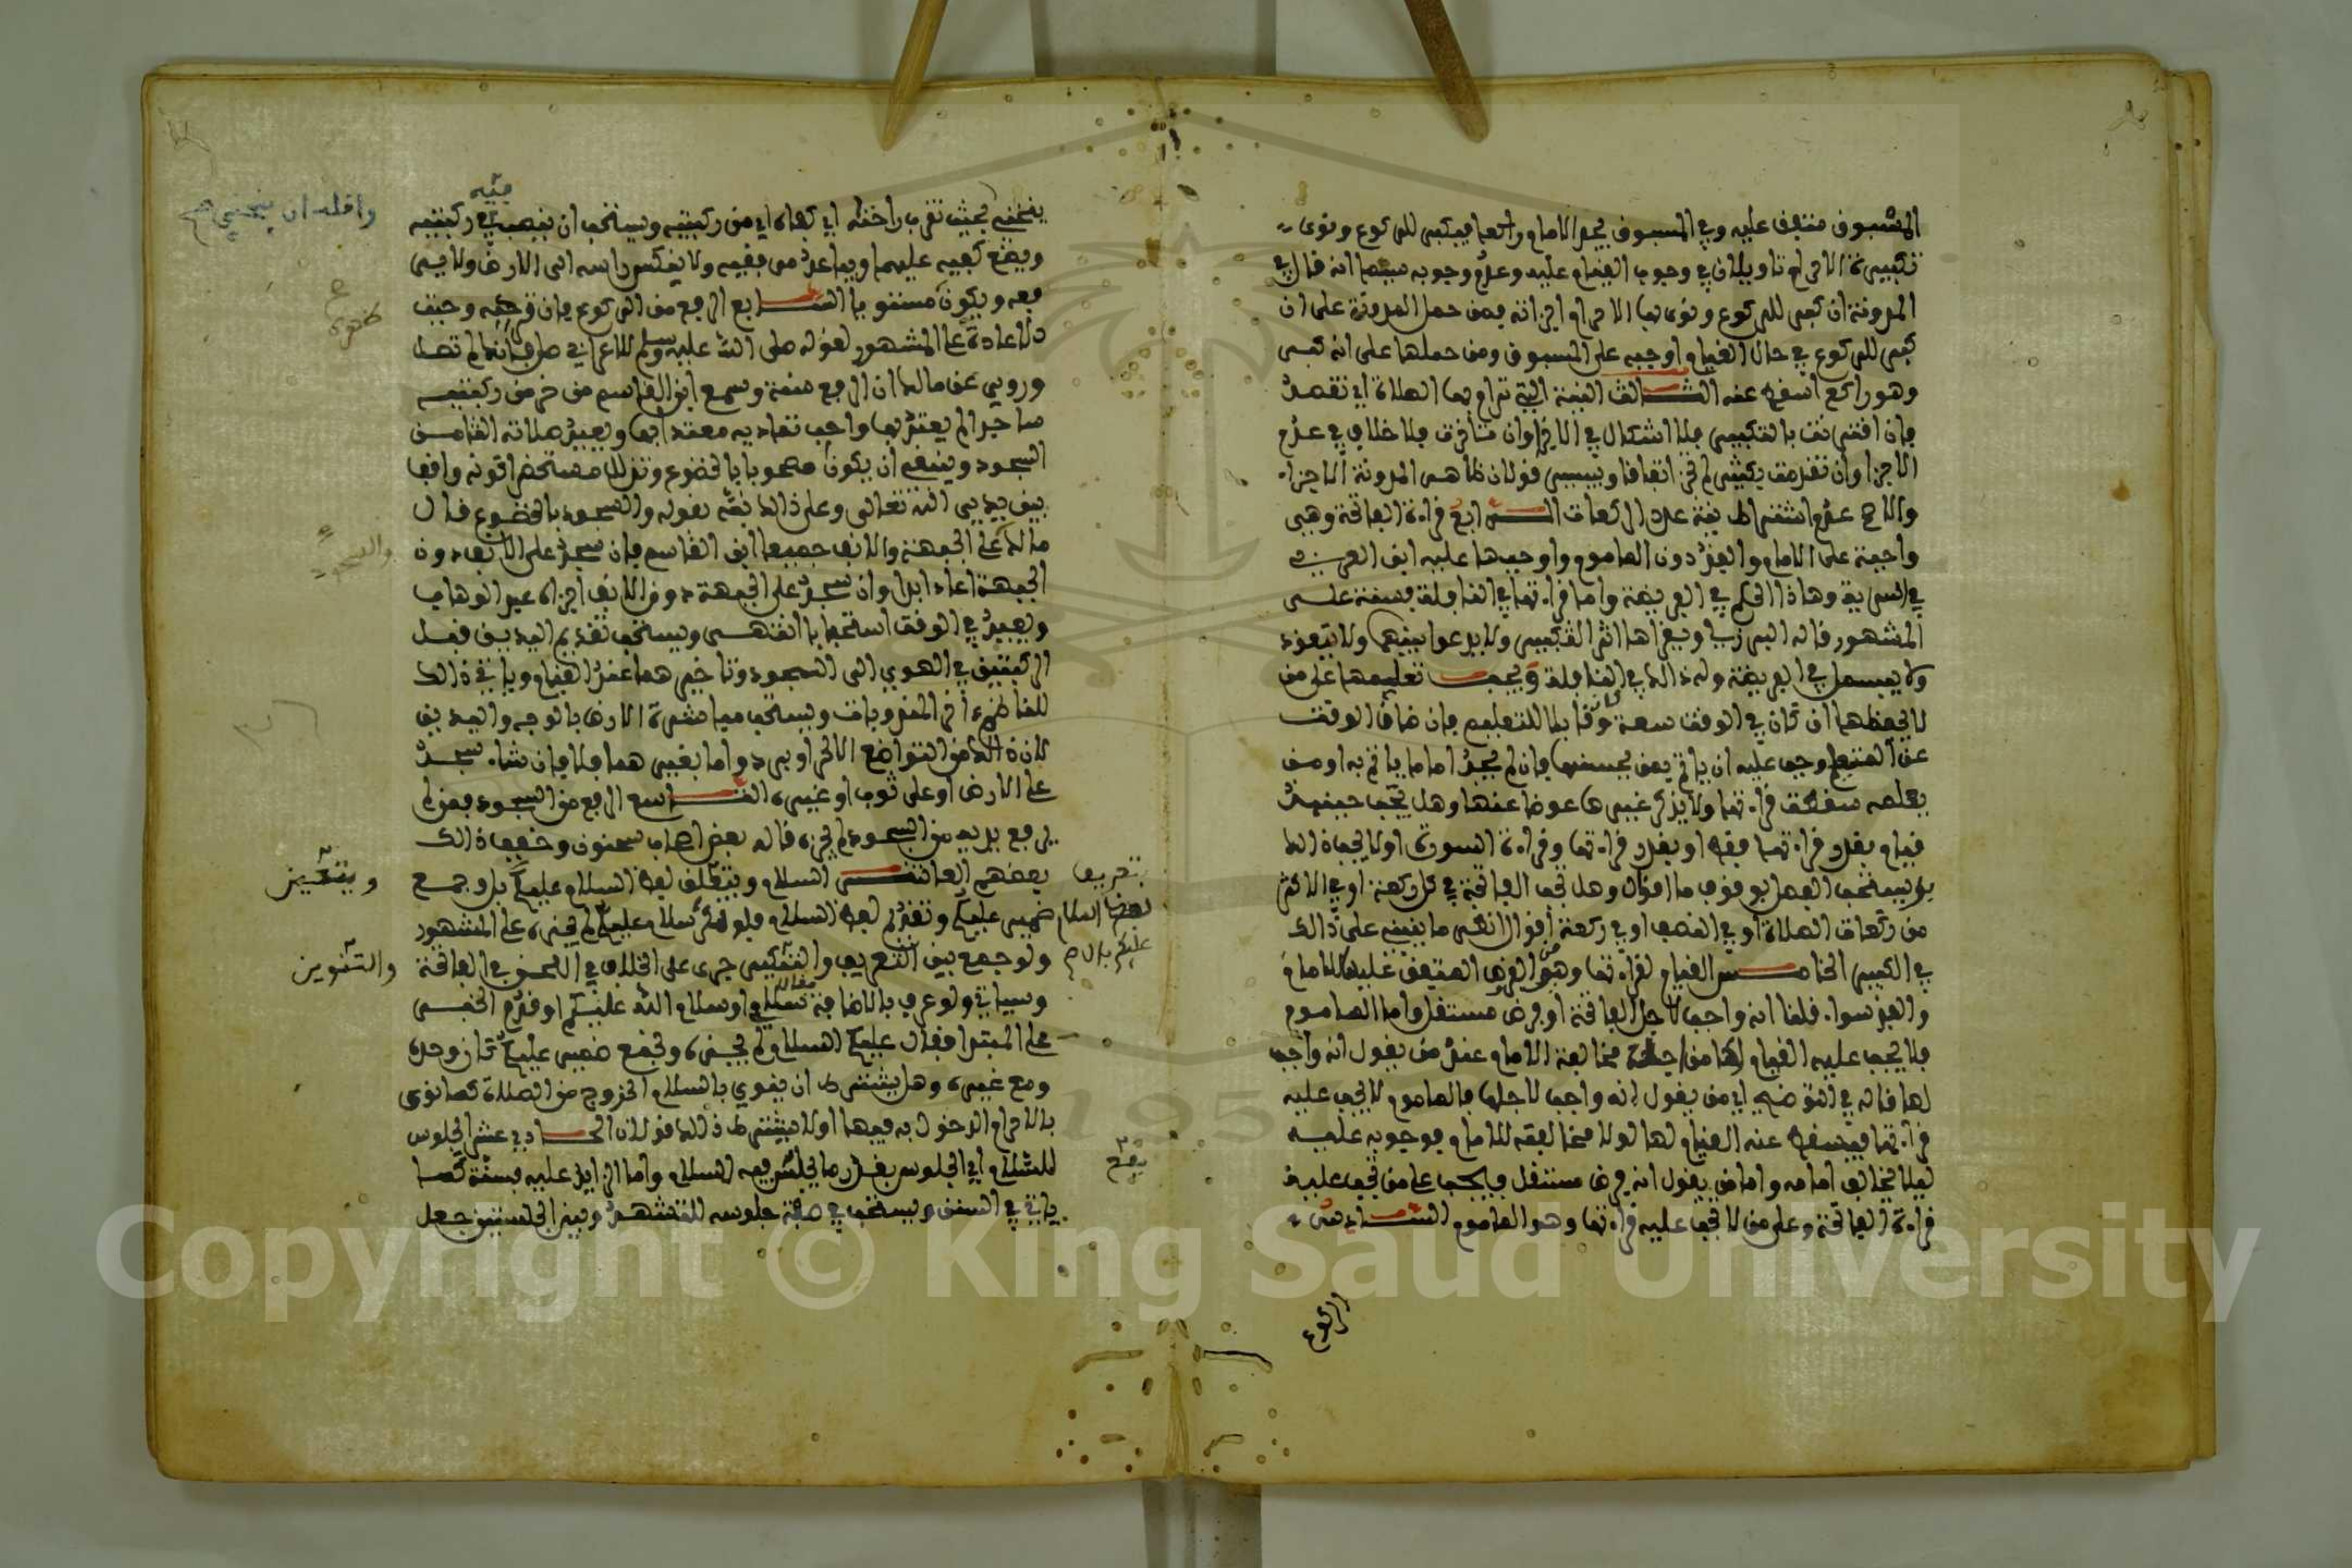 المسبوق متفق عليه وفي المسبوق يجد الامام راكعا فيكبر للركوع ونوى
تكبيرة الاحرام تاويلان في وجوب القيام عليه وعدم وجوبه سببهما انه قال في
المدونة ان كبر للركوع ونوى بها الاحرام اجزاته فمن حمل المدونة على ان
كبر للركوع في حال القيام اوجبه على المسبوق ومن حملها على انه كبر
وهو راكع اسقطه عنه الثالث النية التي تراد بها الصلاة اي تقصد
فان اقترنت بالتكبير فلا اشكال في الاجزا وان تاخرت فلا خلاف في عدم
الاجزا وان تقدمت بكثير لم تجز اتفاقا وبيسير قولان ظاهر المدونة الاجزاء
والاصح عدم اشتراط نية عدد الركعات الرابع قراءة الفاتحة وهي
واجبة على الامام والفذ دون الماموم واوجبها عليه ابن العربي
في السرية وهاذا الحكم في الفريضة واما قراءتها في النافلة فسنة على
المشهور قاله اللبس ويقراها اثر التكبير ولا يدعوا بينهما ولا يتعوذ
ولا يبسمل في الفريضة وله ذالك في النافلة ويجب تعليمها على من
لا يحفظها ان كان في الوقت سعة وكان قابلا للتعليم فان ضاق الوقت
عن التعليم وجب عليه ان ياتم بمن يحسنها فان لم يجد اماما ياتم به او من
يعلمه سقطت قراءتها ولا يذكر غيرها عوضا عنها وهل يجب حينئذ
قيام بقدر قراءتها فقط او بقدر قراءتها وقراءة السورة او لا يجب ذالك
بل يستحب الفصل بوقوف ما اقوال وهل تجب الفاتحة في كل ركعة او في الاكثر
من ركعات الصلاة او في النصف او في ركعة اقوال انظر ما ينبني على ذالك
في الكبير الخامس القيام لقراءتها وهو من الفرض المتفق عليها للامام
والفذ سواء قلنا انه واجب لاجل الفاتحة او فرض مستقل واما الماموم
فلا يجب عليه القيام لها من اجل مخالفة الامام عند من يقول انه واجب
لها قاله في التوضيح اي من يقول انه واجب لاجلها فالماموم لا يجب عليه
قراءتها فيسقط عنه القيام لها لولا مخالفته للامام فوجوبه عليه
ليلا يخالف امامه واما من يقول انه فرض مستقل فيجب على من تجب عليه
قراءة الفاتحة وعلى من لا تجب عليه قراءتها وهو الماموم السادس
الركوع
ينحني بحيث تقرب راحتاه اي كفاه اي من ركبتيه ويستحب ان ينصب ركبتيه
واقله ان ينحني
ويضع كفيه عليهما ويباعد مرفقيه ولا ينكس راسه الى الارض ولا يرى
فعه ويكون مستويا السابع الرفع من الركوع فان تركه وجبت
الاعادة على المشهور لقوله صلى الله عليه وسلم للاعرابي صل فانك لم تصل
وروي عن مالك ان الرفع سنة وسمع ابن القاسم من خر من ركعته
ساجدا لم يعتد بها واحب تماديه معتدا بها ويعيد صلاته الثامن
السجود وينبغي ان يكون مصحوبا بالخضوع وتذلك مستحضرا كونه واقفا
بين يدي الله تعالى وعلى ذالك نبه بقوله والسجود بالخضوع قال
مالك على الجبهة والانف جميعا ابن القاسم فان سجد على الانف دون
الجبهة اعاد ابدا وان سجد على الجبهة دون الانف اجزاه عبد الوهاب
ويعيد في الوقت استحبابا انتهى ويستحب تقديم اليدين قبل
الركبتين في الهوي الى السجود وتاخيرهما عند القيام وياتي ذالك
للناظم في المندوبات ويستحب مباشرة الارض بالوجه واليدين
لان ذالك من التواضع الا لحر او برد واما بغيرهما فلا فان شاء سجد
على الارض او على ثوب او غيره التاسع الرفع من السجود فمن لم
يرفع يديه من السجود لم يجزه قاله بعض اصحاب سحنون وخفف ذالك
بعضهم العاشر السلام ويتعين لفظ السلام عليكم بال وجمع
ويتعين
ضمير عليكم وتقديم لفظ السلام فلو نكر سلام عليكم لم يجزه على المشهور
ولو جمع بين التعريف والتنكير جرى على الخلاف في اللحن في الفاتحة
والتنوين
وسياتي ولو عرف بالاضافة فقال سلامي او سلام الله عليكم او قدم الخبر
على المبتدا فقال عليكم السلام لم يجزه وتجمع ضمير عليكم كان وحده
ومع غيره وهل يشترط ان ينوي بالسلام الخروج من الصلاة كما نوى
بالاحرام الدخول به فيها او لا يشترط ذالك قولان الحادي عشر الجلوس
للسلام اي الجلوس بقدر ما يجلس فيه السلام واما الزايد عليه فسنة كما
ياتي في السنن ويستحب في صفة جلوسه للتشهد وبين الجلستين جعل
Copyright © King Saud University